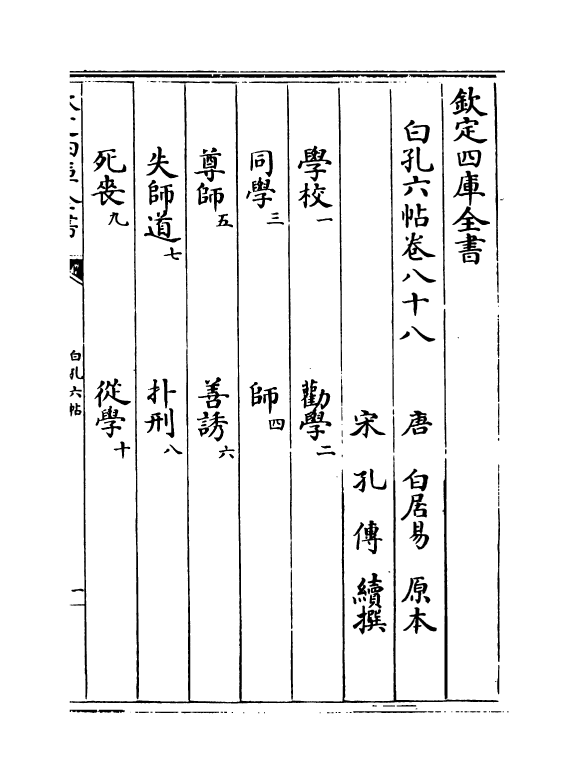 欽定四庫全書
白孔六帖卷八十八　唐　白居易　原本
宋　孔　傳　續撰
學校一　勸學二
同學三　師四
尊師五　善誘六
失師道七　扑刑八
死喪九　從學十
白孔六帖
一